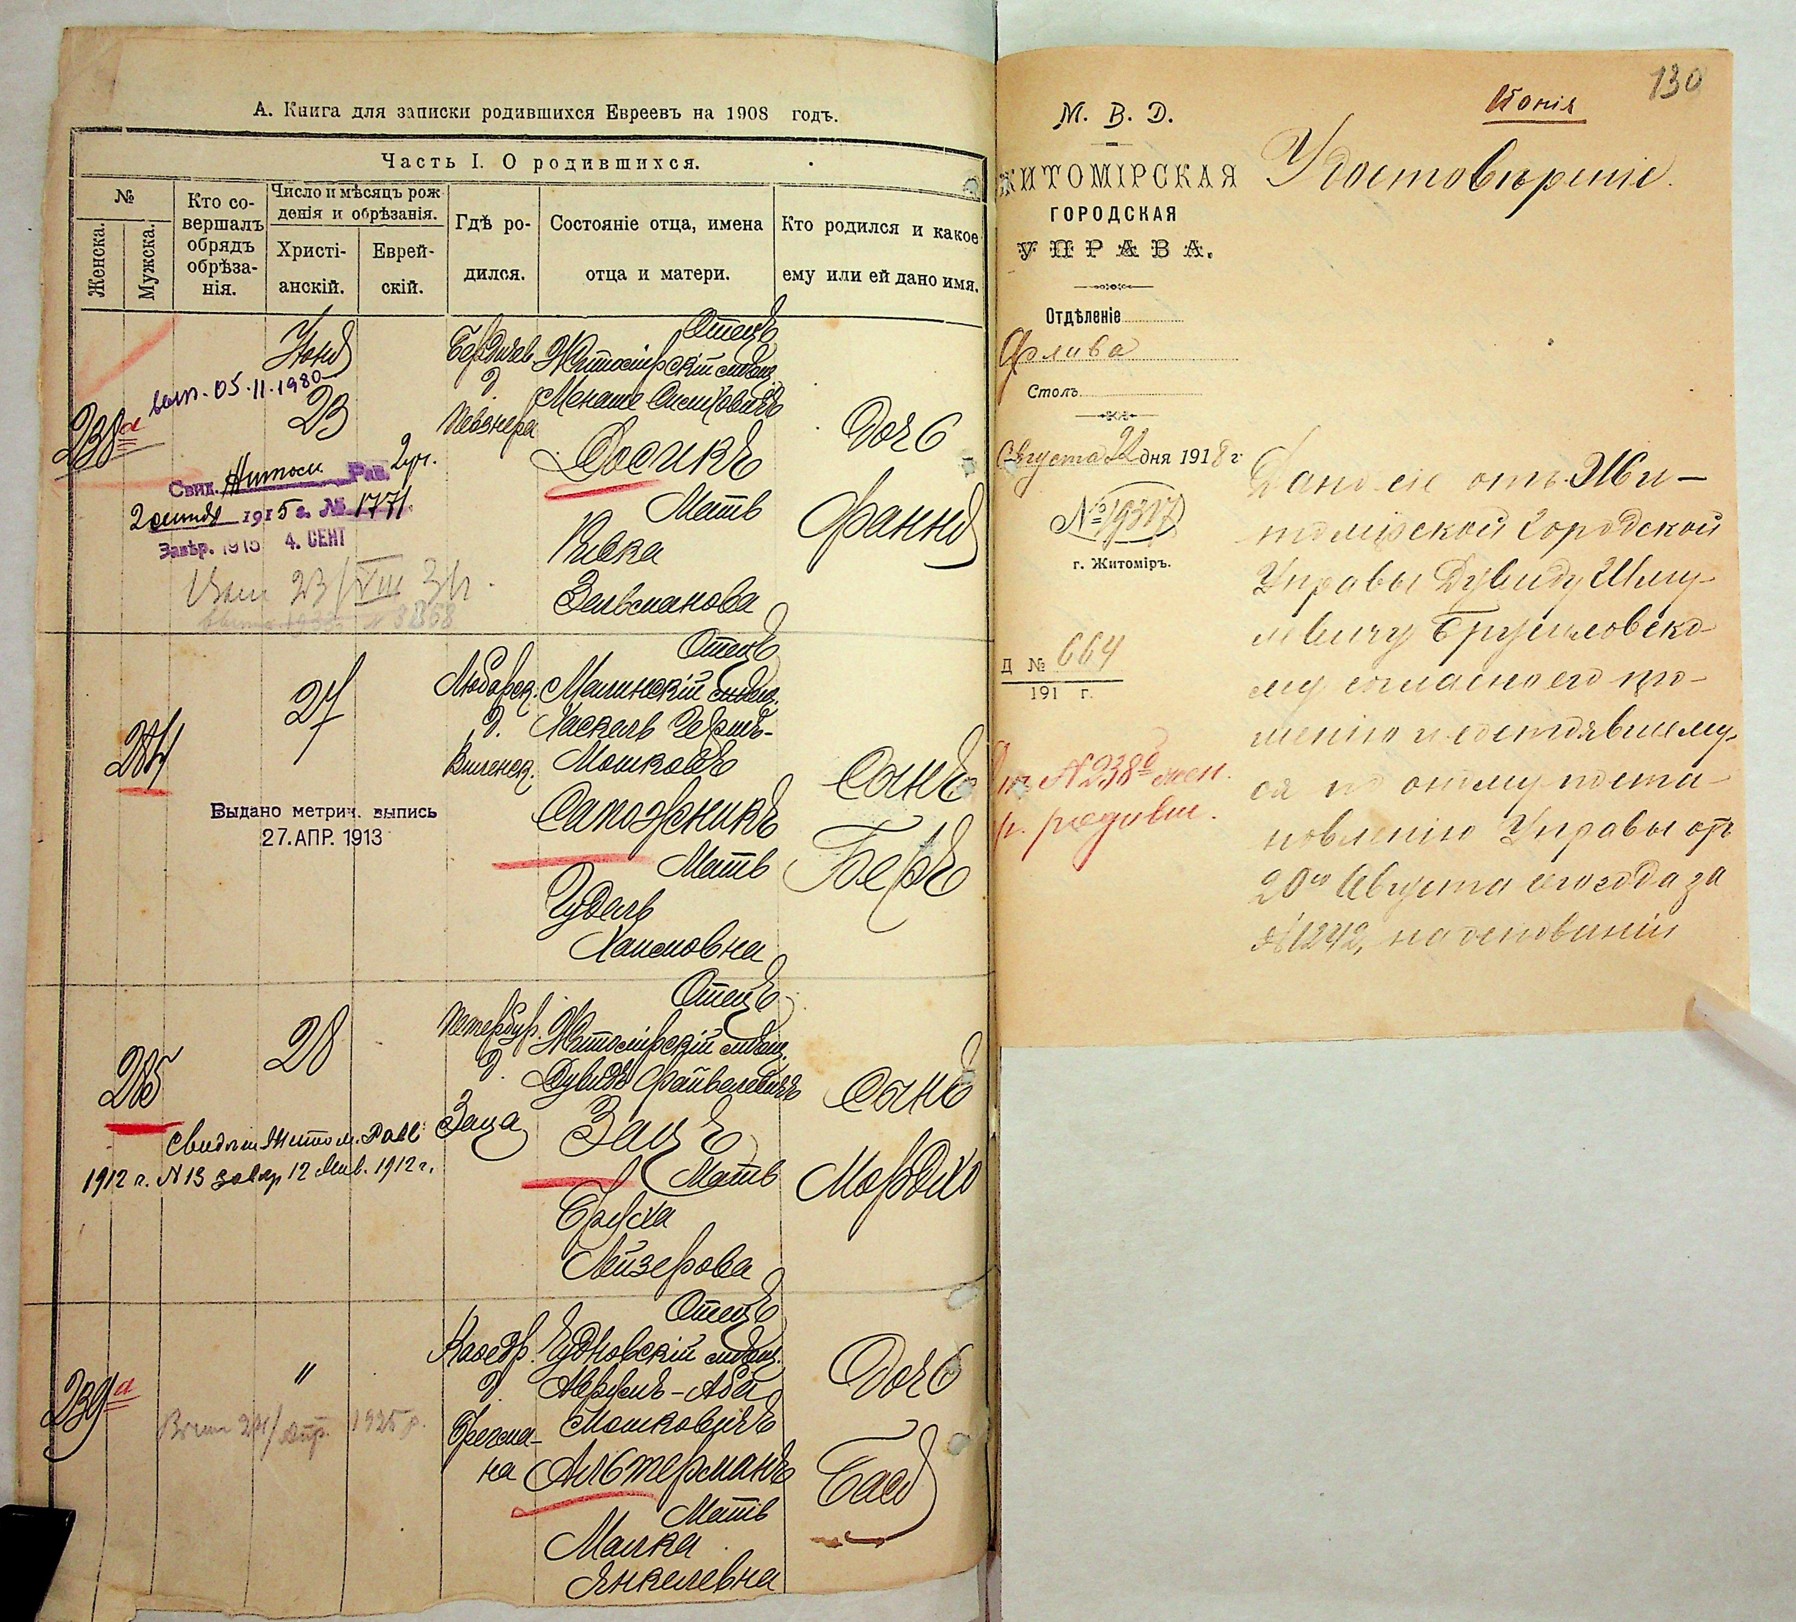 А. Книга для записки родившихся Евреевъ на 1908 годъ.
Часть I. О родившихся.
№
Женска.
Мужска.
Кто со-
вершалъ
обрядъ
обрѣза-
нія.
Число и мѣсяцъ рож
денія и обрѣзанія.
Христі-
анскій.
Еврей-
скій.
Гдѣ ро-
дился.
Состояніе отца, имена
отца и матери.
Кто родился и какое
ему или ей дано имя.
238а
вып. 05.11.1980
Свид. Житом. Рав.
2 сентяб 1915 г. № 1771
Завѣр. 1915 4. СЕНТ
23
Бердичев
д.
Певзнера
Отецъ
Житомірскій мѣщ.
Досикъ
Мать
Ривка
Зельманова
Дочь
284
Выдано метрич. выпись
27. АПР. 1913
27
Любарск.
д.
Виленск.
Отецъ
Малинскій мѣщ.
Хаскель Гершъ-
Мошковъ
Сапожникъ
Мать
Гудель
Хаимовна
Сынъ
Беръ
285
Свидѣт. Житом. Рав.
1912 г. № 13 завѣр 12 Янв. 1912 г.
28
Петербур.
д.
Заца
Отецъ
Житомірскій мѣщ.
Дувидъ Файвелевичъ
Зацъ
Мать
Бруха
Лейзерова
Сынъ
Мордхо
239а
1925 г.
"
Кафедр.
д.
Фрегма-
на
Отецъ
Чудновскій мѣщ.
Аврумъ-Аба
Мошковичъ
Альтерманъ
Мать
Малка
Янкелевна
Дочь
Бася
130
Копія
М. В. Д.
ЖИТОМІРСКАЯ
ГОРОДСКАЯ
УПРАВА.
Отдѣленіе
Столъ
Августа 22 дня 1918 г.
№ 19317
г. Житоміръ.
Д № 664
191 г.
Къ № 238 а жен.
р. родивш.
Удостовѣреніе.
Дано сіе отъ Жи-
томірской Городской
Управы Дувиду Шму-
левичу Брусиловско-
му согласно его про-
шенію и состоявшему-
ся по оному поста-
новленію Управы отъ
20го Августа сего года за
№ 1242, на основаніи